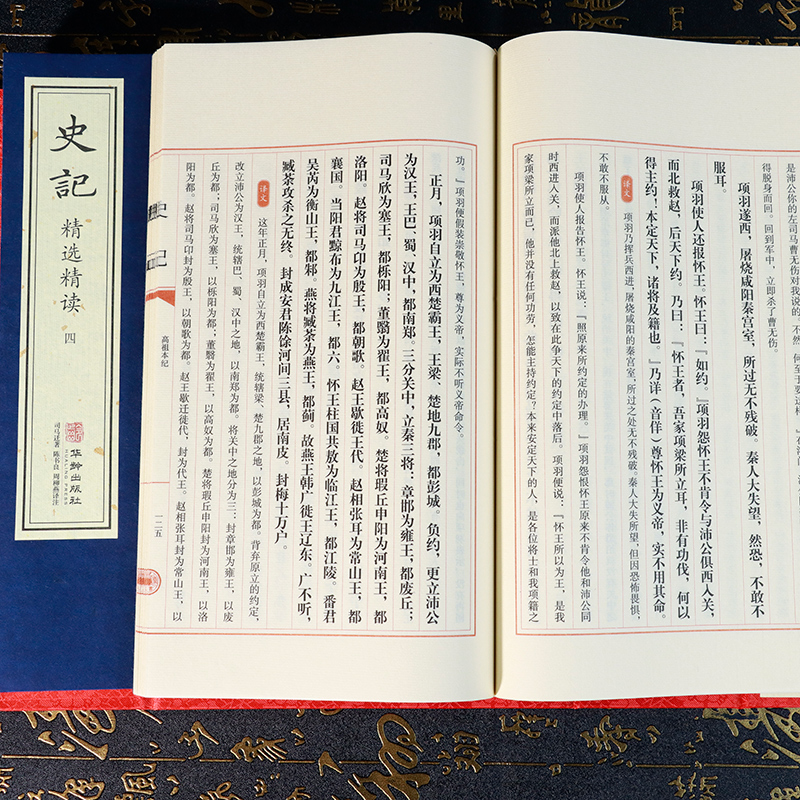 史記
精选精读
四
司马迁著 陈书良 周柳燕译注
华龄出版社
HUALING PRESS
是沛公你的左司马曹无伤对我说的。不然,何至于
得脱身而回。回到军中,立即杀了曹无伤。
项羽遂西,屠烧咸阳秦宫室,所过无不残破。秦人大失望,然恐,不敢不
服耳。
项羽使人还报怀王。怀王曰:『如约。』项羽怨怀王不肯令与沛公俱西入关,
而北救赵,后天下约。乃曰:『怀王者,吾家项梁所立耳,非有功伐,何以
得主约!本定天下,诸将及籍也。』乃详(音佯)尊怀王为义帝,实不用其命。
译文
项羽乃挥兵西进,屠烧咸阳的秦宫室,所过之处无不残破。秦人大失所望,但因恐怖畏惧,
不敢不服从。
项羽使人报告怀王。怀王说:『照原来所约定的办理。』项羽怨恨怀王原来不肯令他和沛公同
时西进入关,而派他北上救赵,以致在此争天下的约定中落后。项羽便说:『怀王所以为王,是我
家项梁所立而已,他并没有任何功劳,怎能主持约定?本来安定天下的人,是各位将士和我项籍之
功。』项羽便假装崇敬怀王,尊为义帝,实际不听义帝命令。
正月,项羽自立为西楚霸王,王梁、楚地九郡,都彭城。负约,更立沛公
为汉王,王巴、蜀、汉中,都南郑。三分关中,立秦三将:章邯为雍王,都废丘;
司马欣为塞王,都栎阳;董翳为翟王,都高奴。楚将瑕丘申阳为河南王,都
洛阳。赵将司马卬为殷王,都朝歌。赵王歇徙王代。赵相张耳为常山王,都
襄国。当阳君黥布为九江王,都六。怀王柱国共敖为临江王,都江陵。番君
吴芮为衡山王,都邾。燕将臧荼为燕王,都蓟。故燕王韩广徙王辽东。广不听,
臧荼攻杀之无终。封成安君陈馀河间三县,居南皮。封梅十万户。
译文
这年正月,项羽自立为西楚霸王,统辖梁、楚九郡之地,以彭城为都。背弃原立的约定,
改立沛公为汉王,统辖巴、蜀、汉中之地,以南郑为都。将关中之地分为三:封章邯为雍王,以废
丘为都;司马欣为塞王,以栎阳为都;董翳为翟王,以高奴为都。楚将瑕丘申阳封为河南王,以洛
阳为都。赵将司马卬封为殷王,以朝歌为都。赵王歇迁徙代,封为代王。赵相张耳封为常山王,以
高祖本纪
一二五